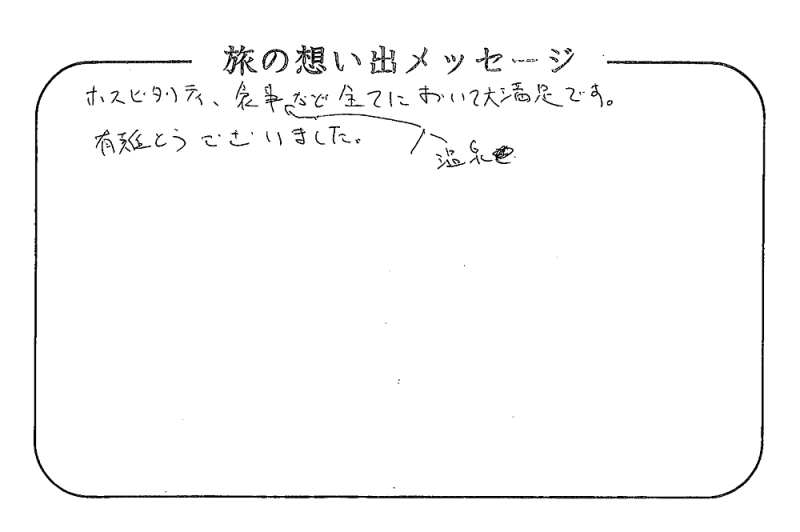 旅の想い出メッセージ
ホスピタリティ、食事など全てにおいて大満足です。
有難とうございました。
温泉